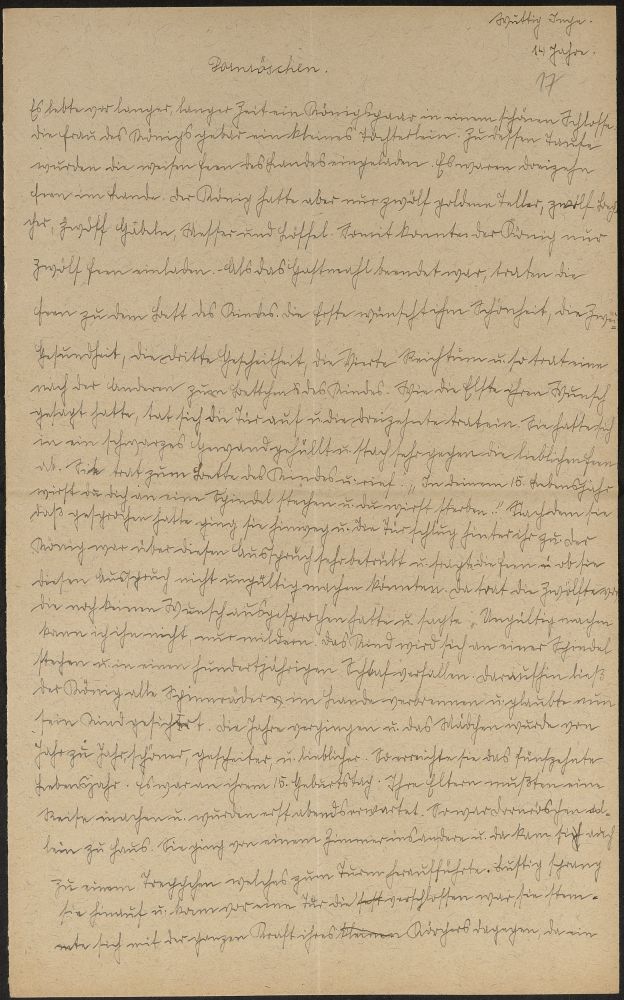 Wuttig Inge.
14 Jahre.
17
Dornröschen.
Es lebte vor langer, langer Zeit ein Königspaar in einem schönen Schlosse
die Frau des Königs gebar ein kleines Töchterlein. Zu dessen Taufe
wurden die weisen Feen des Landes eingeladen. Es waren dreizehn
Feen im Lande. Der König hatte aber nur zwölf goldene Teller, zwölf Bech
cher, zwölf Gabeln, Messer und Löffel. Somit konnte der König nur
zwölf Feen einladen. - Als das Gastmahl beendet war, traten die
Feen zu dem Bett des Kindes. Die Erste wünscht ihm Schönheit, die Zwei-
Gesundheit, die Dritte Gescheitheit, die Vierte Reichtum u. so trat eine
nach der Anderen zum Bettchen des Kindes. Wie die Elfte ihren Wunsch
gesagt hatte, tat sich die Tür auf u. die dreizehnte trat ein. Sie hatte sich
in ein schwarzes Gewand gehüllt u. stach sehr gegen die lieblichen Feen
ab. Sie trat zum Bette des Kindes u. rief: „In deinem 15. Lebensjahr
wirst du dich an eine Spindel stechen u. du wirst sterben.!" Nachdem sie
daß gesprochen hatte ging sie hinweg u. die Tür schlug hinter ihr zu. Der
König war über diesen Ausspruch sehr betrübt u. fragte die Feen ob sie
diesen Ausspruch nicht ungültig machen könnten. Da trat die Zwölfte vor
die noch keinen Wunsch ausgesprochen hatte u. sagte „Ungültig machen
kann ich ihn nicht, nur mildern. Das Kind wird sich an einer Spindel
stechen u. in einen hundertjährigen Schlaf verfallen. Daraufhin ließ
der König alle Spinnräder im Lande verbrennen u. glaubte nun
sein Kind gesichert. Die Jahre vergingen u. das Mädchen wurde von
Jahr zu Jahr schöner, gescheiter, u. lieblicher. So erreichte sie das fünfzehnte
Lebensjahr. Es war an ihrem 15. Geburtstag. Ihre Eltern mußten eine
Reise machen u. wurden erst abends erwartet. So war Dornröschen al-
lein zu Haus. Sie ging von einem Zimmer ins andere u. da kam sie auch
zu einem Treppchen welches zum Turm heraufführte. Lustig sprang
sie hinauf u. kam vor eine Tür die fest verschlossen war sie stem-
mte sich mit der ganzen Kraft ihres kleinen Körpers dagegen, da ein